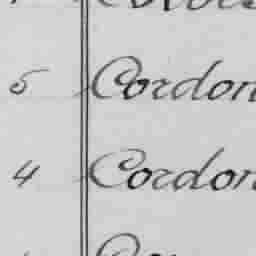 5 Cordon
4 Cordon